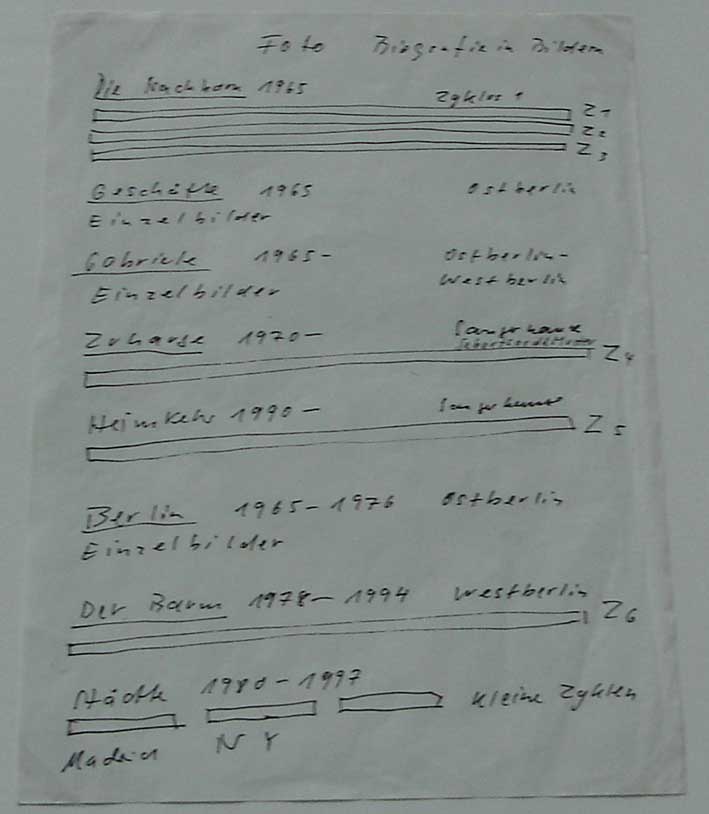 Foto Biografie in Bildern
Die Nachbarn 1965 Zyklus 1
Z1
Z2
Z3
Geschäfte 1965 Ostberlin
Einzelbilder
Gabriele 1965- Ostberlin-
Einzelbilder Westberlin
Zuhause 1970- Sangerhausen
Z4
Heimkehr 1990- Sangerhausen
Z5
Berlin 1965-1976 Ostberlin
Einzelbilder
Der Baum 1978-1994 Westberlin
Z6
Städte 1980-1997
kleine Zyklen
Madrid NY